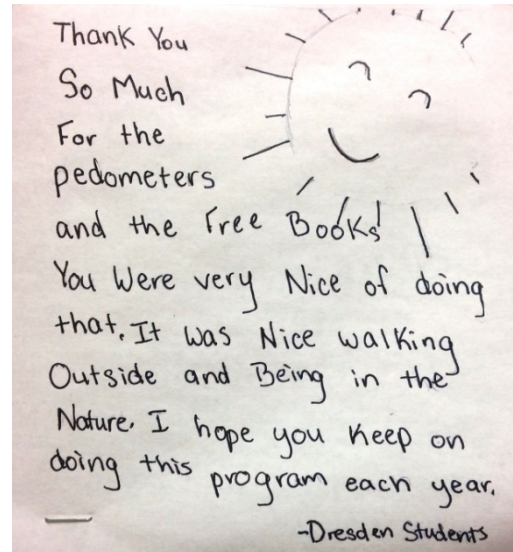 Thank You
So Much
For the
pedometers
and the Free Books!
You Were very Nice of doing
that. It was Nice walking
Outside and Being in the
Nature. I hope you Keep on
doing this program each year.
-Dresden Students